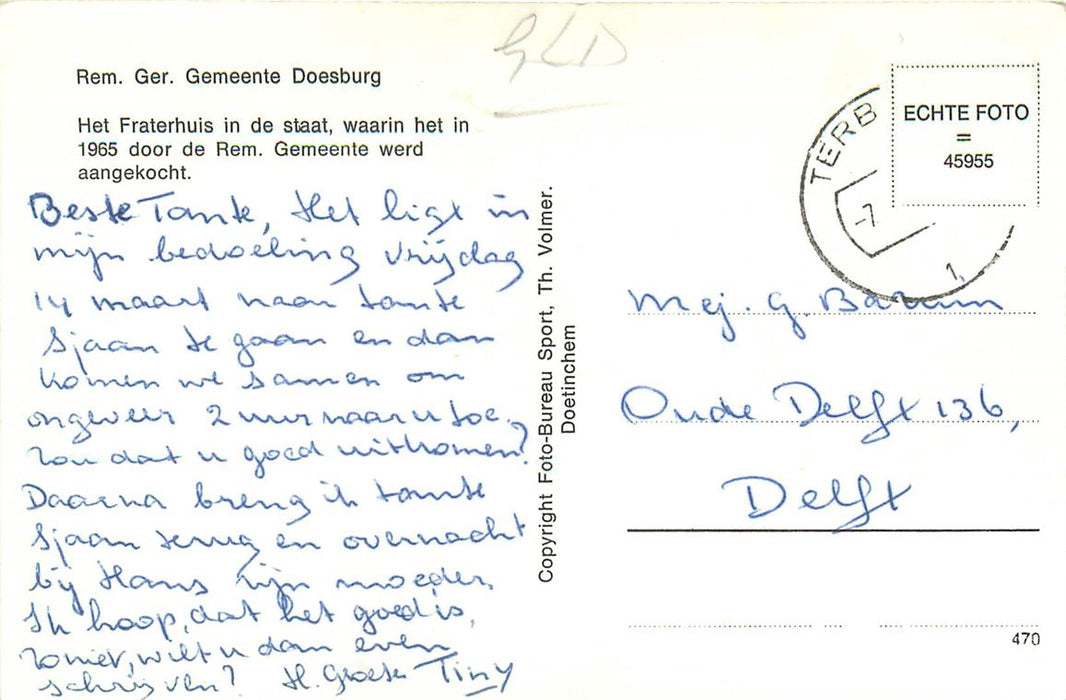 GLD
Rem. Ger. Gemeente Doesburg
Het Fraterhuis in de staat, waarin het in
1965 door de Rem. Gemeente werd
aangekocht.
Beste Tante, Het ligt in
mijn bedoeling vrijdag
14 maart naar tante
Sjaan te gaan en dan
komen we samen om
ongeveer 2 uur naar u toe.
Zou dat u goed uitkomen?
Daarna breng ik tante
Sjaan terug en overnacht
bij Hans zijn moeder.
Ik hoop, dat het goed is,
zoniet, wilt u dan even
schrijven? H. Groeten Tiny
Copyright Foto-Bureau Sport, Th. Volmer.
Doetinchem
TERB
-7
1
ECHTE FOTO
=
45955
Mej. G.
Oude Delft 136,
Delft
470